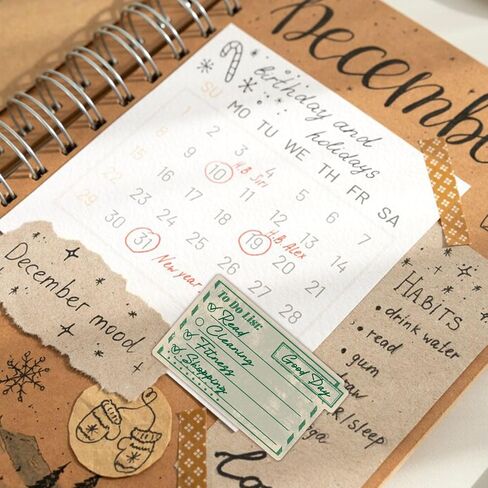 December
Birthday and
holidays
SU MO TU WE TH FR SA
1 2 3 4 5 6 7
8 9 10 11 12 13 14
H.B. Siri
15 16 17 18 19 20 21
H.B. Alex
22 23 24 25 26 27 28
29 30 31
New year
December mood
To Do List:
Read
Cleaning
Fitness
Shopping
Good Day
HABITS
• drink water
• read
• gum
/sleep